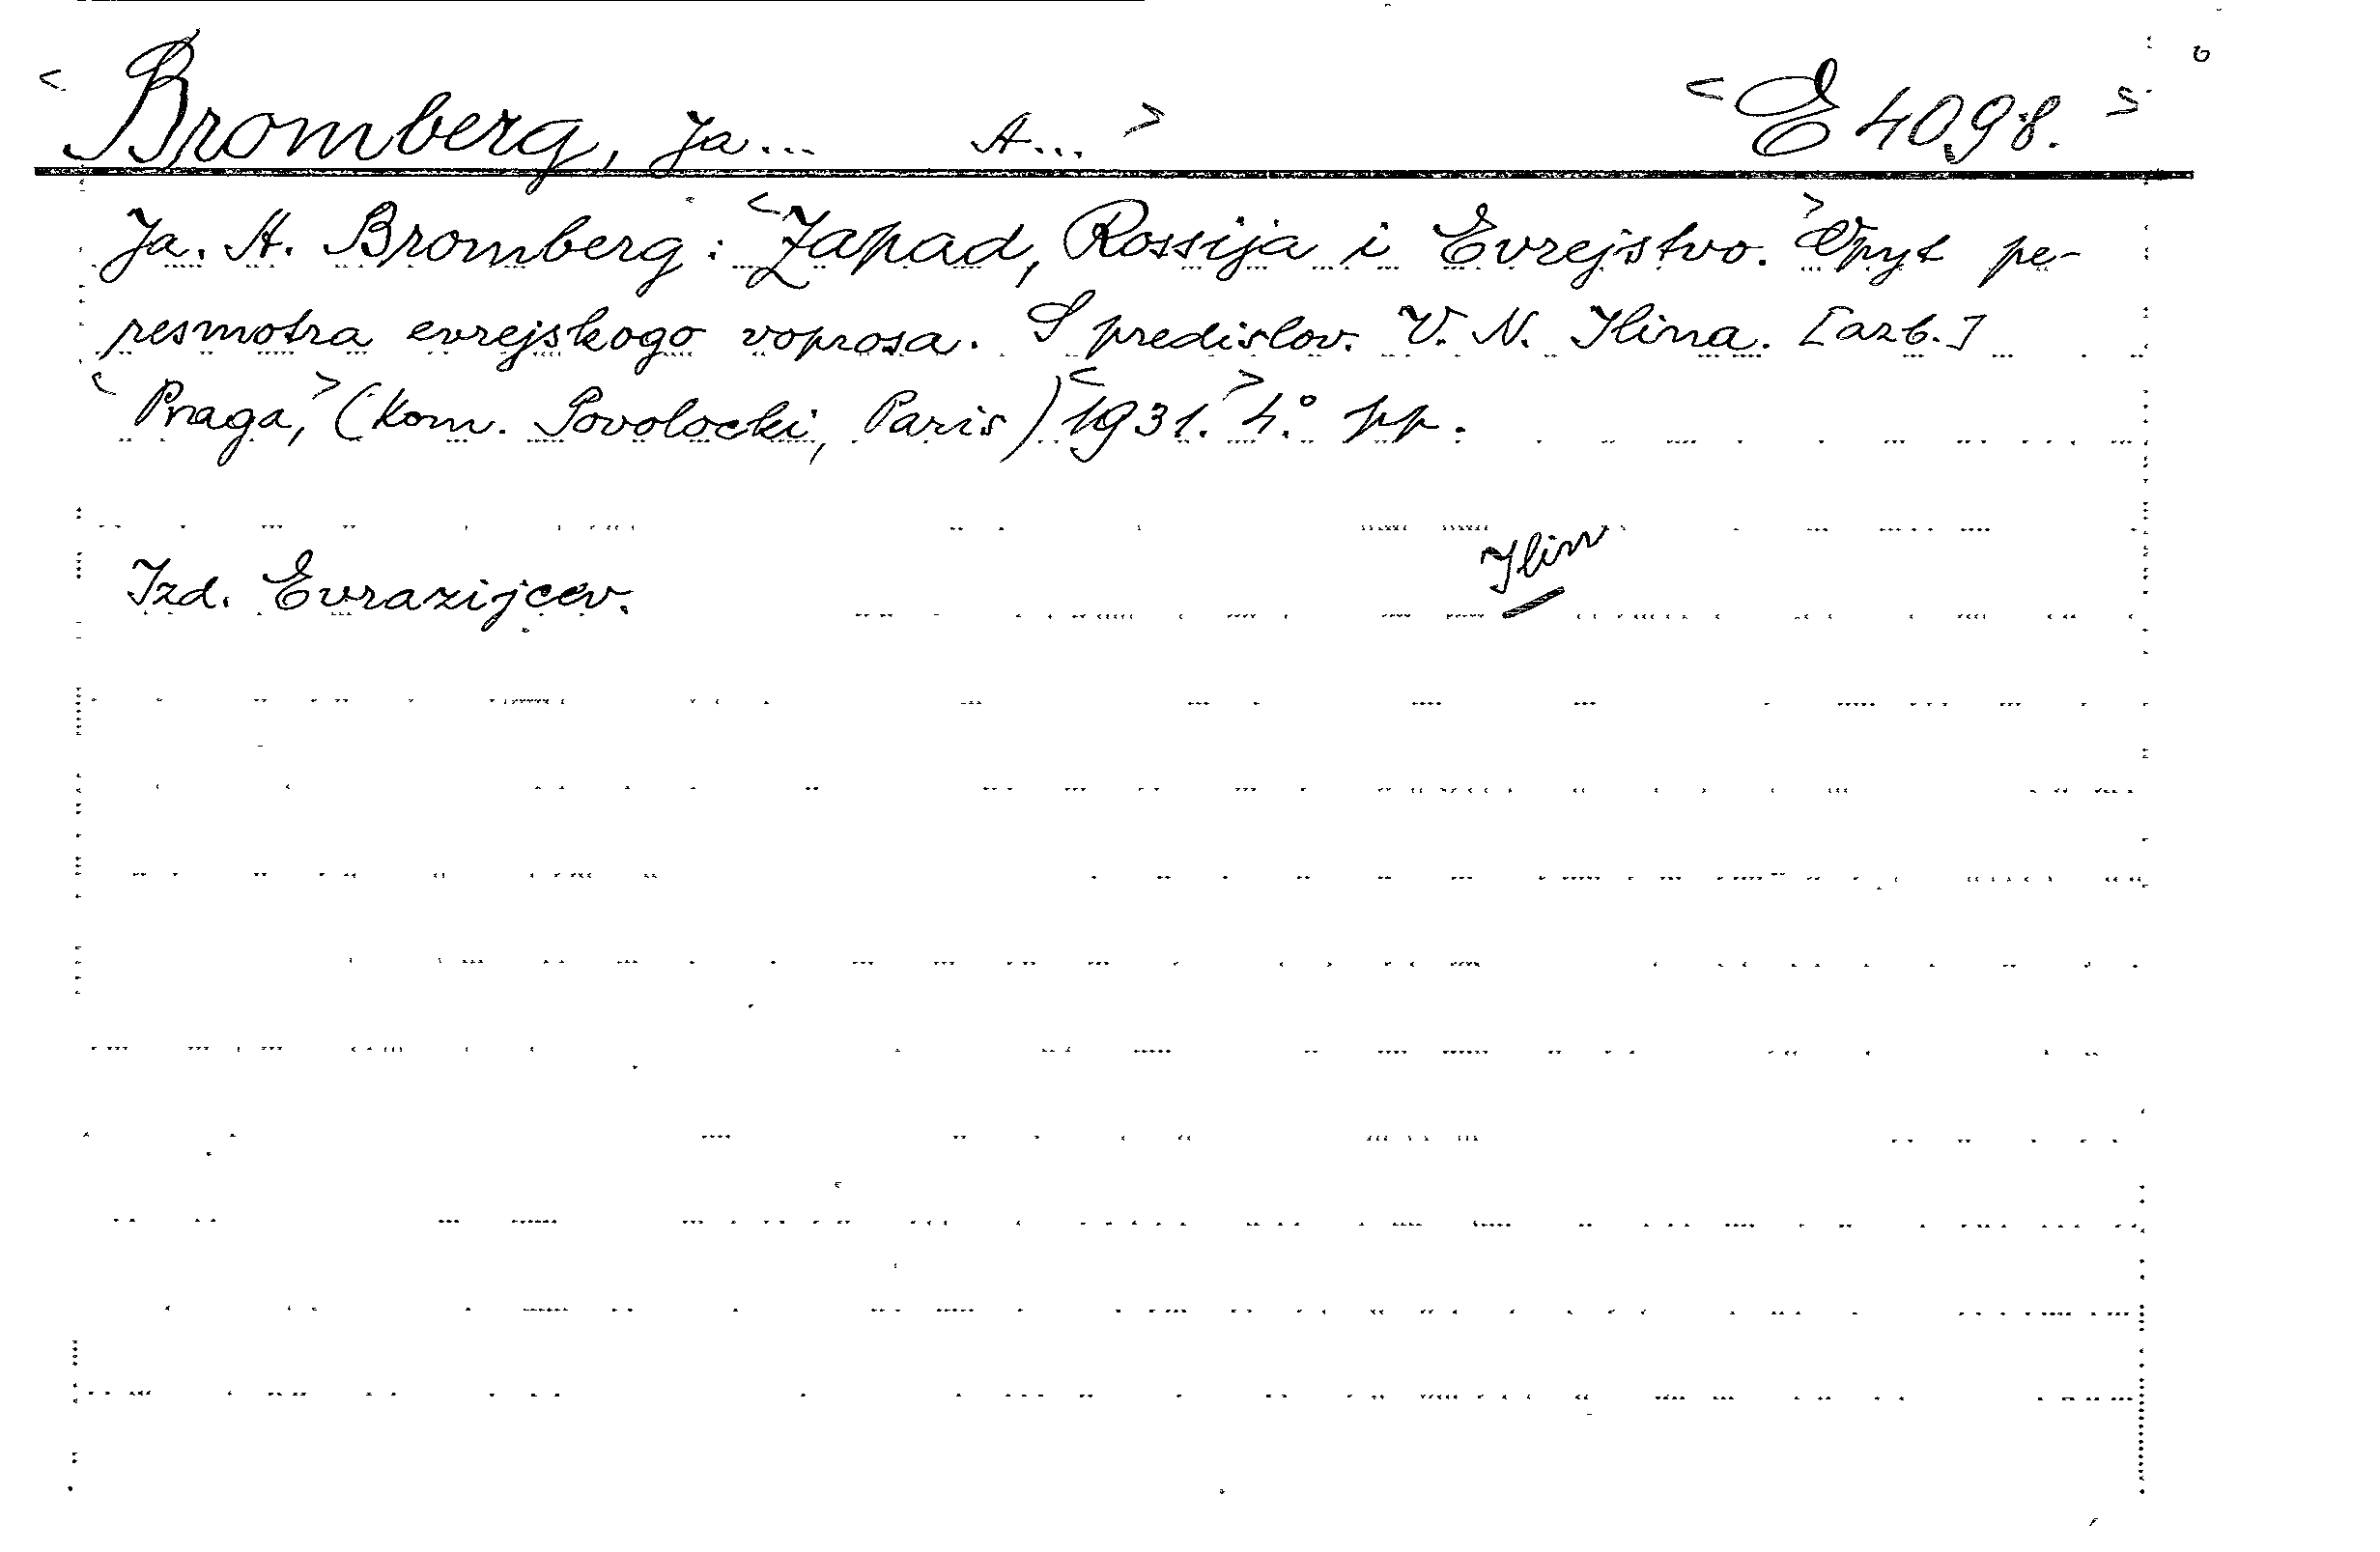 < Bromberg, Ja... A... > < E 4098. >
Ja. A. Bromberg: < Zapad, Rossija i Evrejstvo. > Opyt pe-
resmotra evrejskogo voprosa. S predislov. V. N. Ilina. [azb.]
< Praga, > (Kom. Povolocki, Paris) < 1931. > 4.° pp.
Ilin
Izd. Evrazijcev.